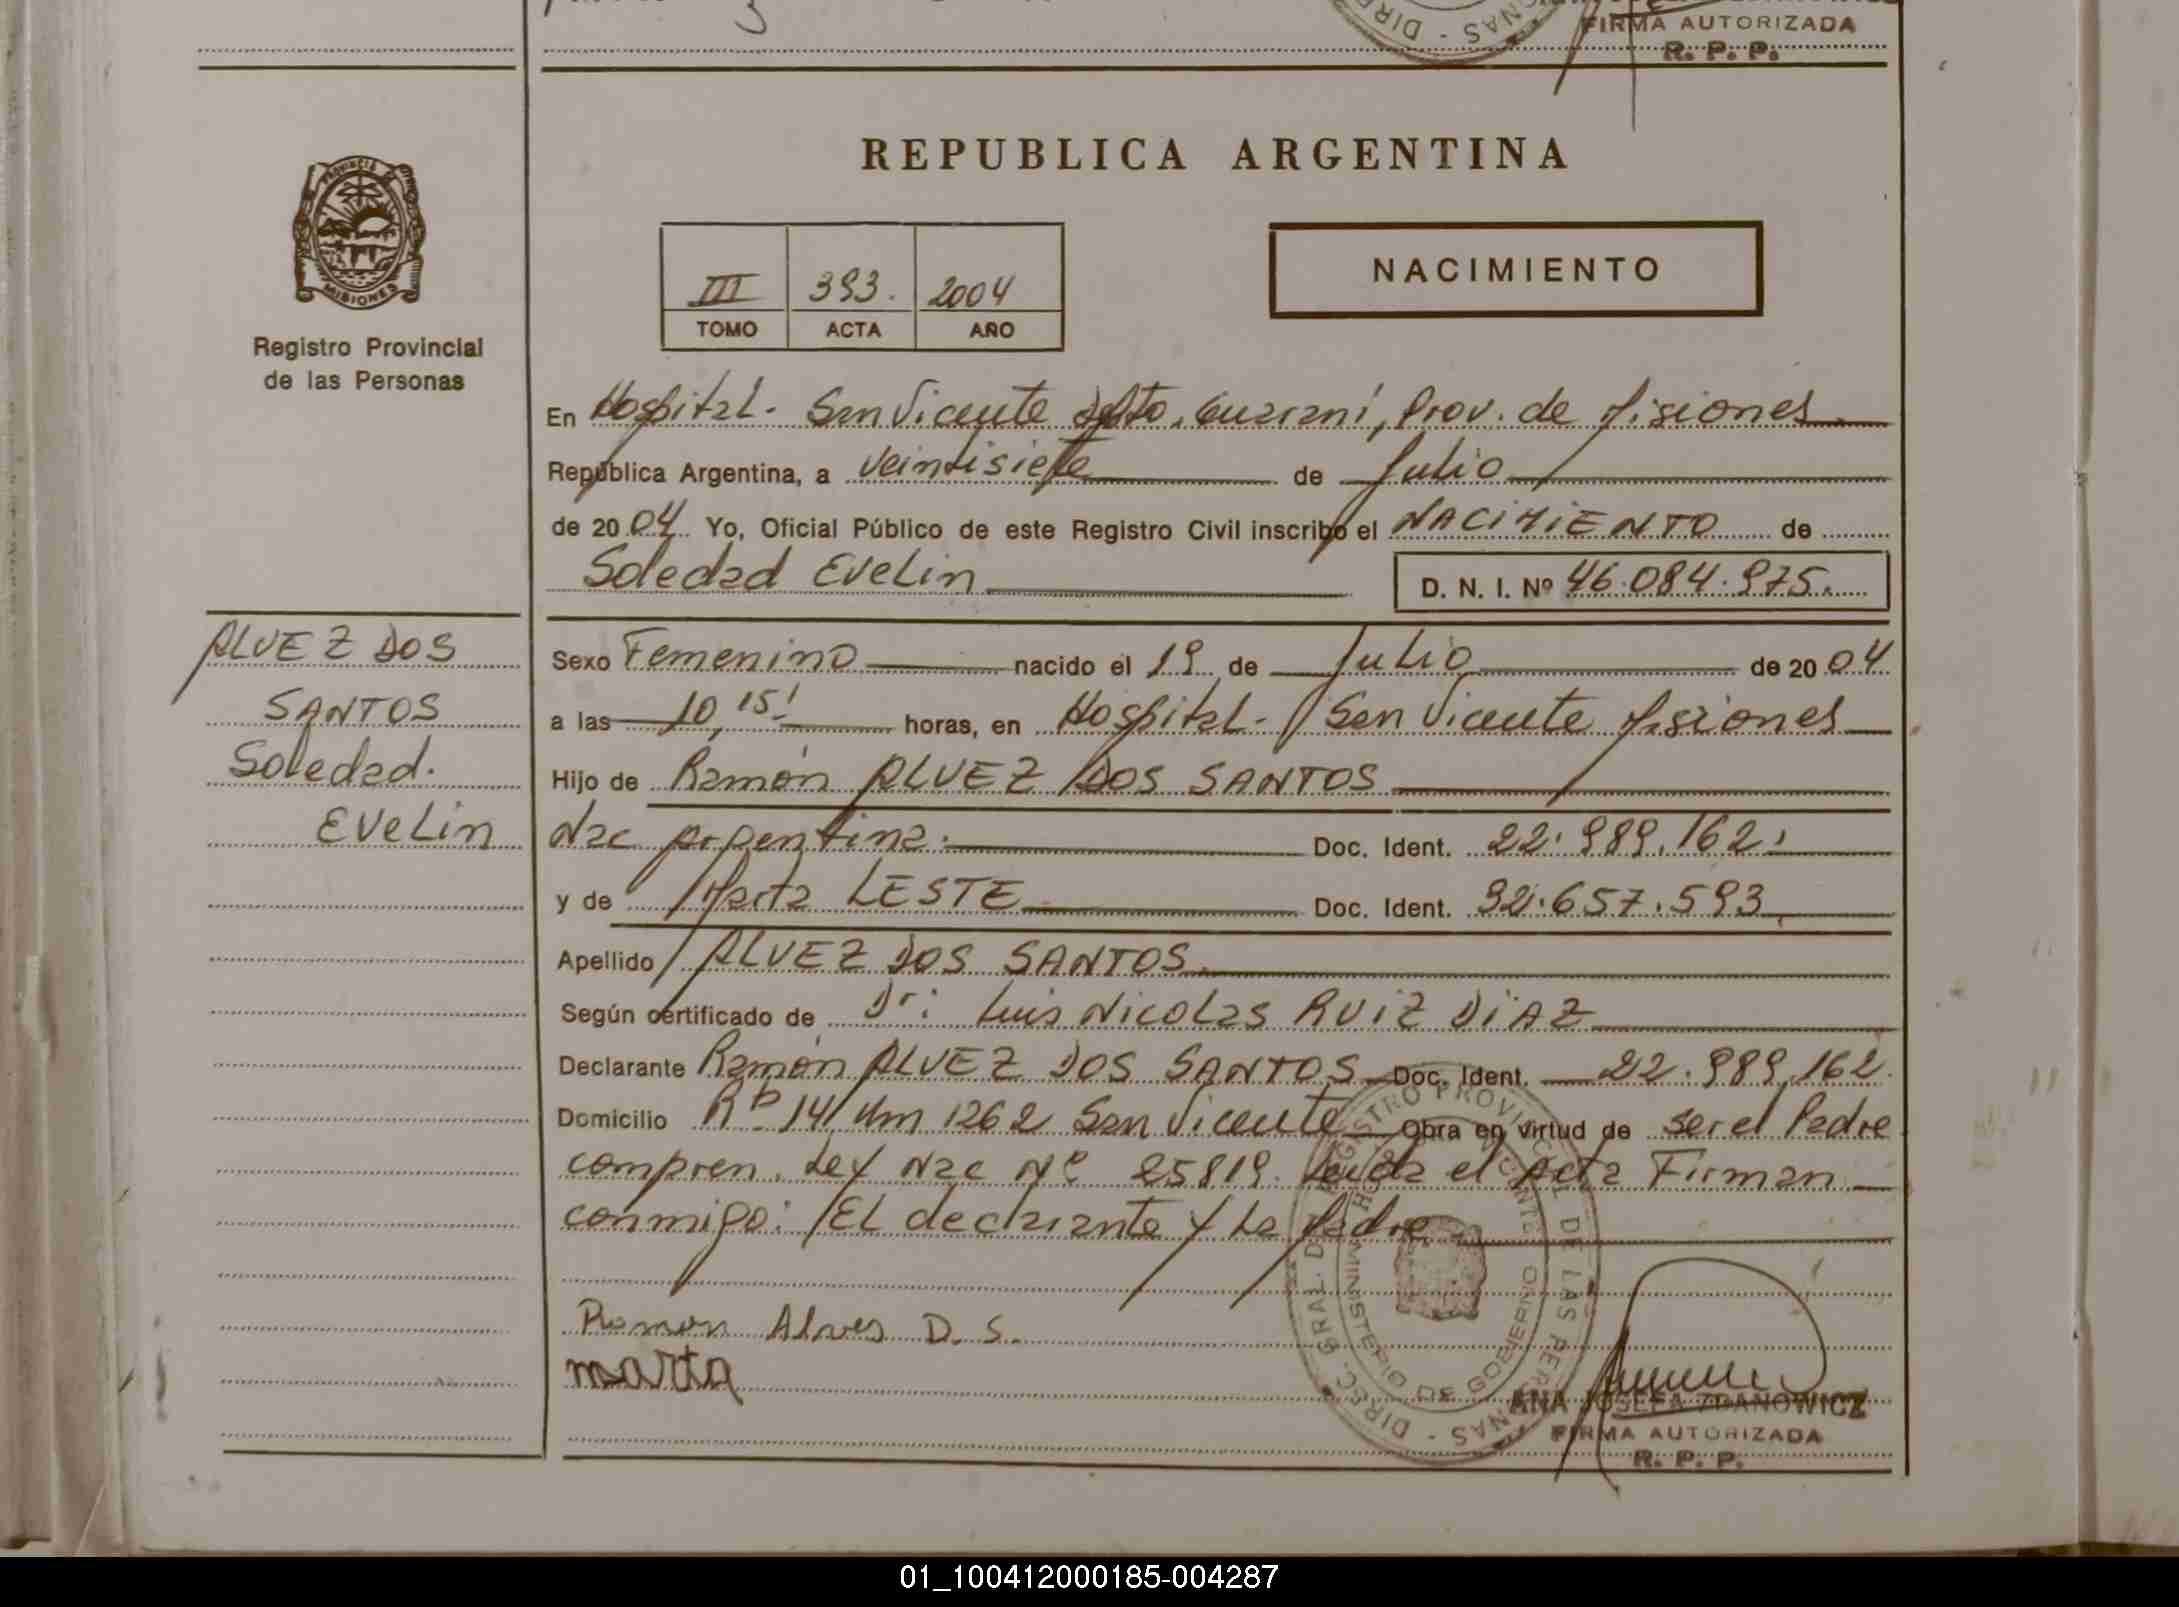 FIRMA AUTORIZADA
R. P. P.
REPUBLICA ARGENTINA
PROVINCIA DE
MISIONES
Registro Provincial
de las Personas
III 393. 2004
TOMO ACTA AÑO
NACIMIENTO
En Hospital. San Vicente Dpto. Guaraní, Prov. de Misiones
República Argentina, a veintisiete de Julio
de 2004 Yo, Oficial Público de este Registro Civil inscribo el NACIMIENTO de
Soledad Evelin
D. N. I. Nº 46.084.975.
ALVEZ DOS
SANTOS
Soledad.
Evelin
Sexo Femenino nacido el 19 de Julio de 2004
a las 10,15! horas, en Hospital. San Vicente Misiones
Hijo de Ramón ALVEZ DOS SANTOS
Nac Argentina. Doc. Ident. 22.989.162.
y de Marta LESTE Doc. Ident. 92.657.593
Apellido ALVEZ DOS SANTOS
Según certificado de Dr: Luis Nicolas RUIZ DIAZ
Declarante Ramón ALVEZ DOS SANTOS Doc. Ident. 22.989.162.
Domicilio 14 Km 1262 San Vicente Obra en virtud de ser el Padre
compren. Ley Nac Nº 25819. Leida el Acta Firman
conmigo: El declarante y La Madre
Ramon Alves D. S.
marta
DIREC. GRAL. DEL REGISTRO PROVINCIAL DE LAS PERSONAS
MINISTERIO DE GOBIERNO
ANA JOSEFA ZDANOWICZ
FIRMA AUTORIZADA
R. P. P.
01_100412000185-004287